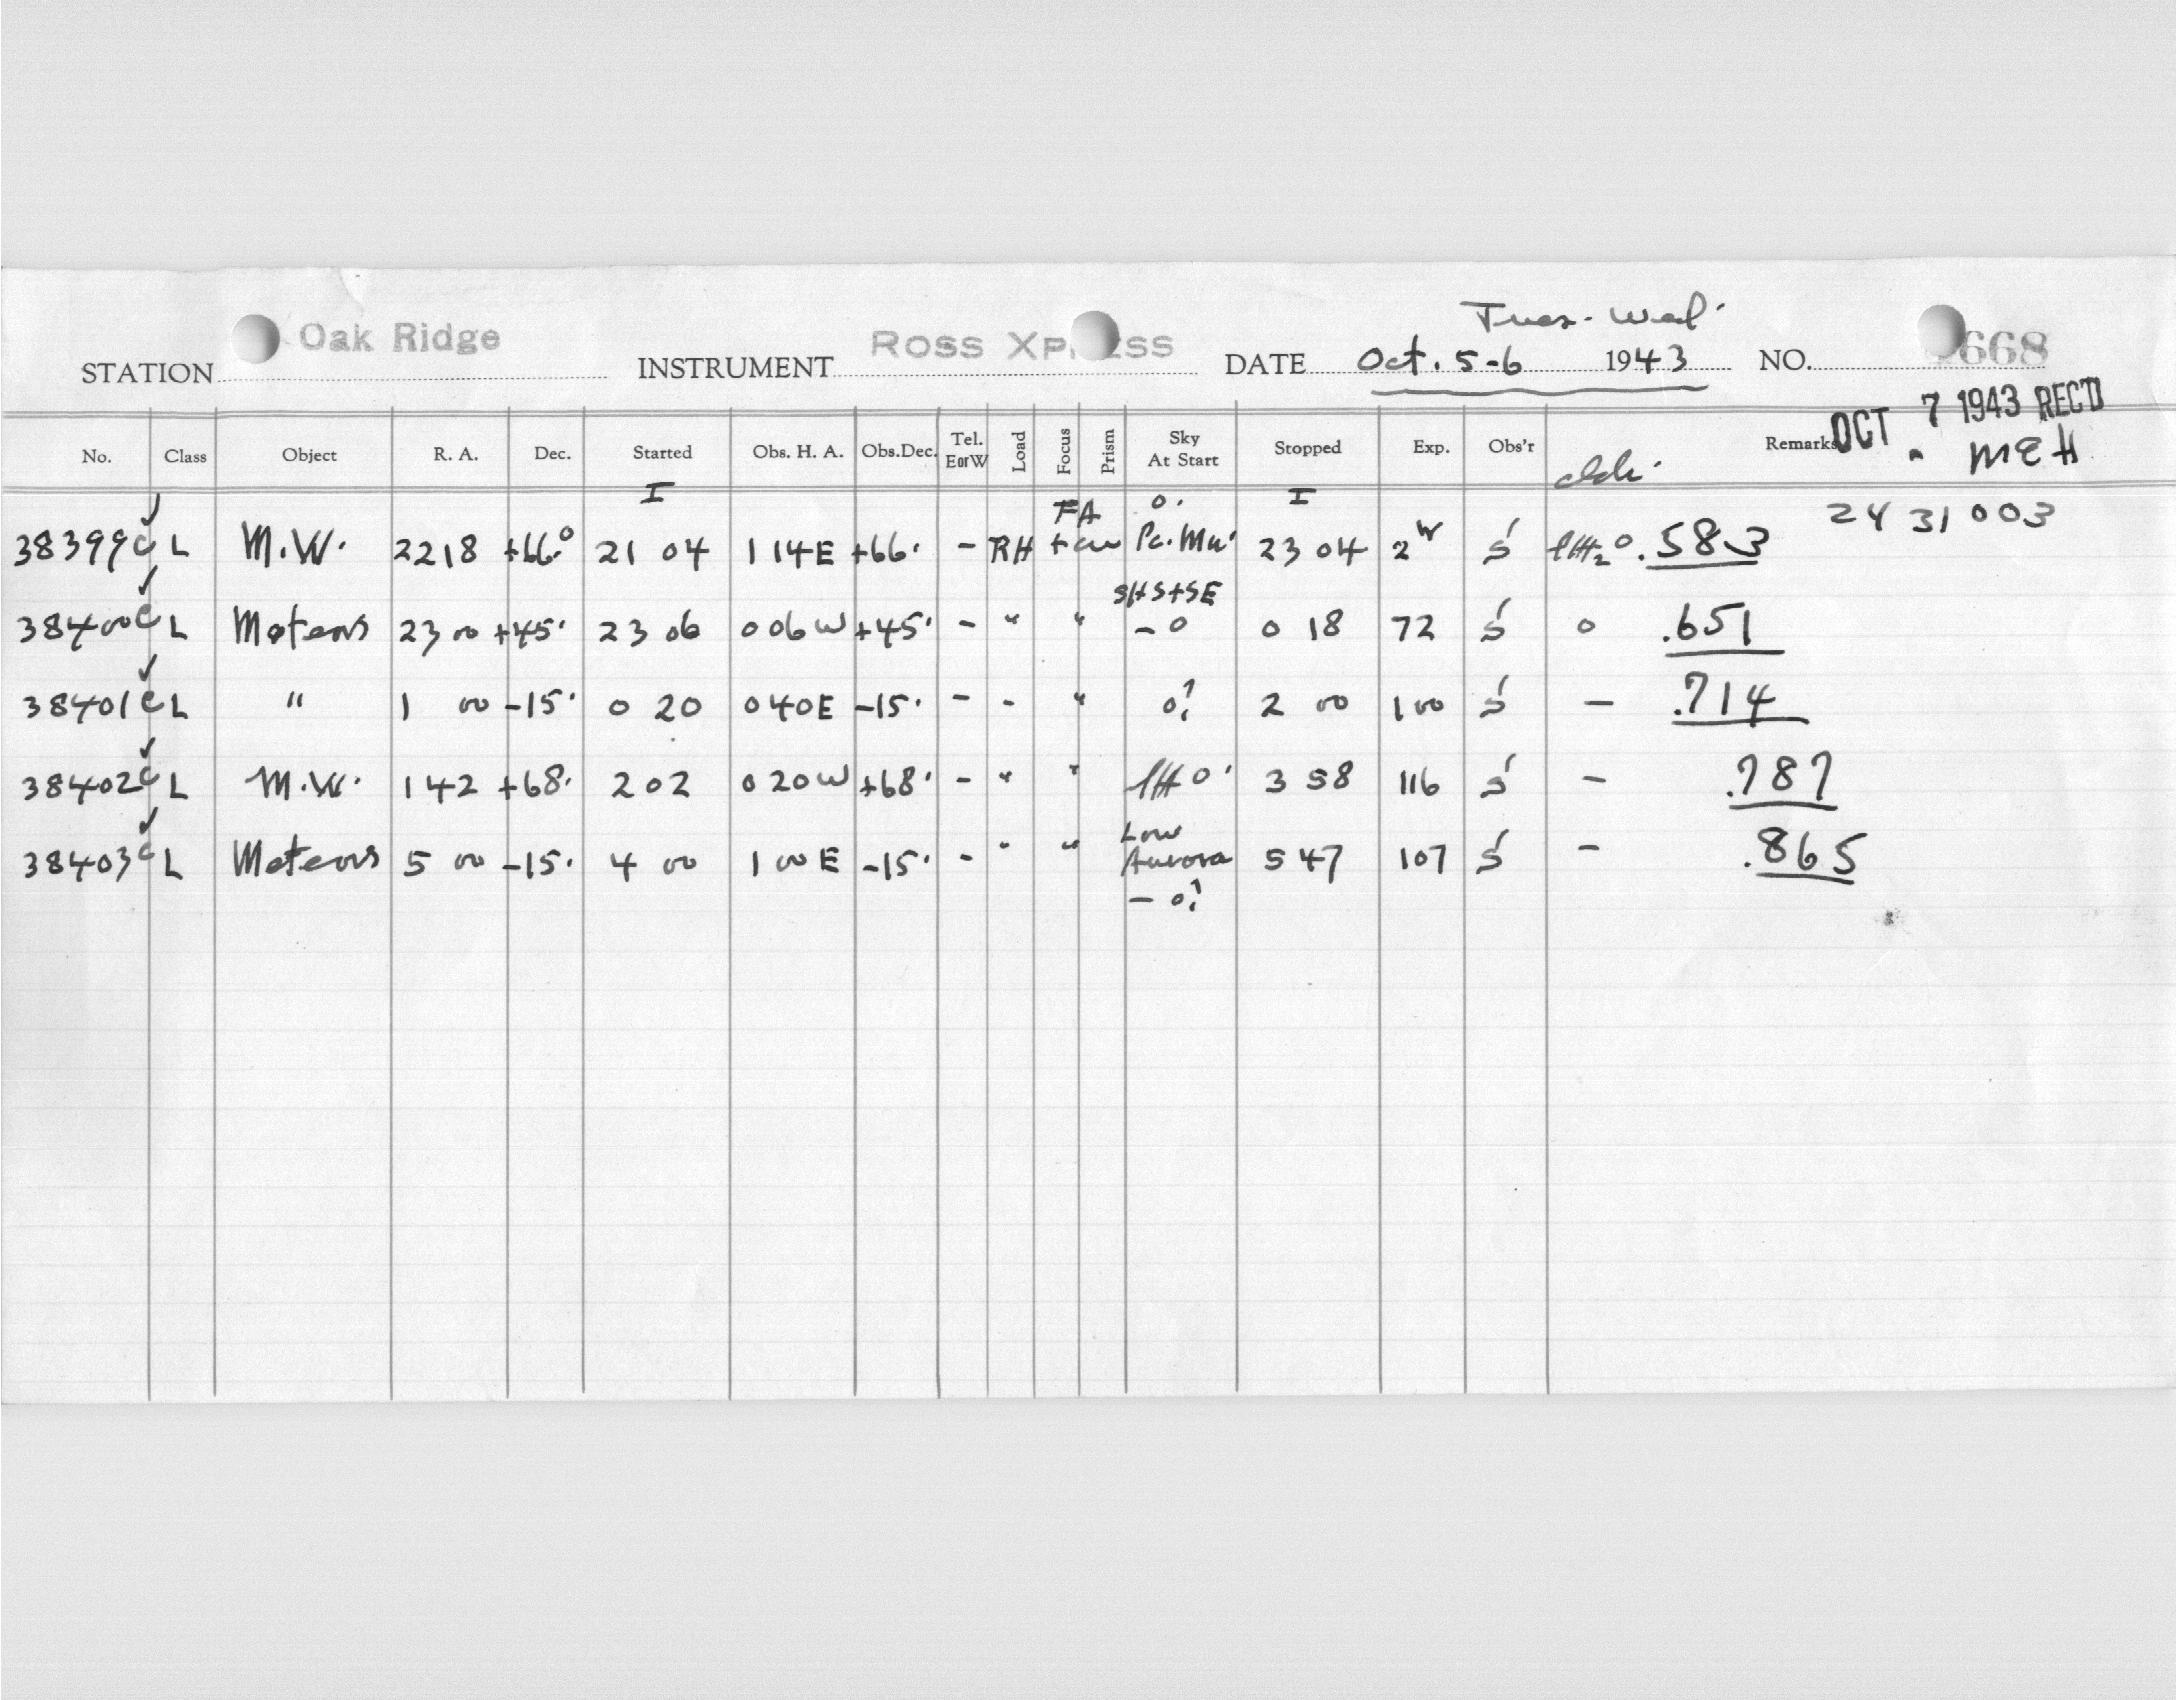 Tues. - Wed.
STATION Oak Ridge INSTRUMENT ROSS XPRESS DATE Oct. 5-6 1943 NO. 668
OCT 7 1943 REC'D
No. Class Object R. A. Dec. Started Obs. H. A. Obs.Dec. Tel. E or W Load Focus Prism Sky At Start Stopped Exp. Obs'r Remarks
MEH
I I
2431003
38399 c L M.W. 22 18 +66° 21 04 1 14 E +66. - RH FA 0. 23 04 2 S .583
SH S+SE
38400 c L Meteors 23 00 +45. 23 06 0 06 W +45. - " " - 0 0 18 72 S 0 .651
38401 c L " 1 00 -15. 0 20 0 40 E -15. - - " 0? 2 00 100 S - .714
38402 c L M.W. 1 42 +68. 2 02 0 20 W +68. - " " 0. 3 58 116 S - .787
38403 c L Meteors 5 00 -15. 4 00 1 00 E -15. - " " Low Aurora - 0? 5 47 107 S - .865